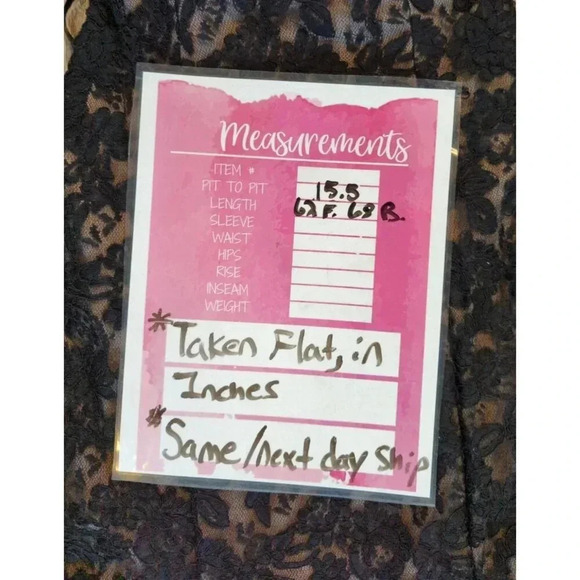 Measurements
ITEM #
PIT TO PIT 15.5
LENGTH 62 F. 69 B.
SLEEVE
WAIST
HIPS
RISE
INSEAM
WEIGHT
*Taken Flat, in
Inches
*Same/next day ship